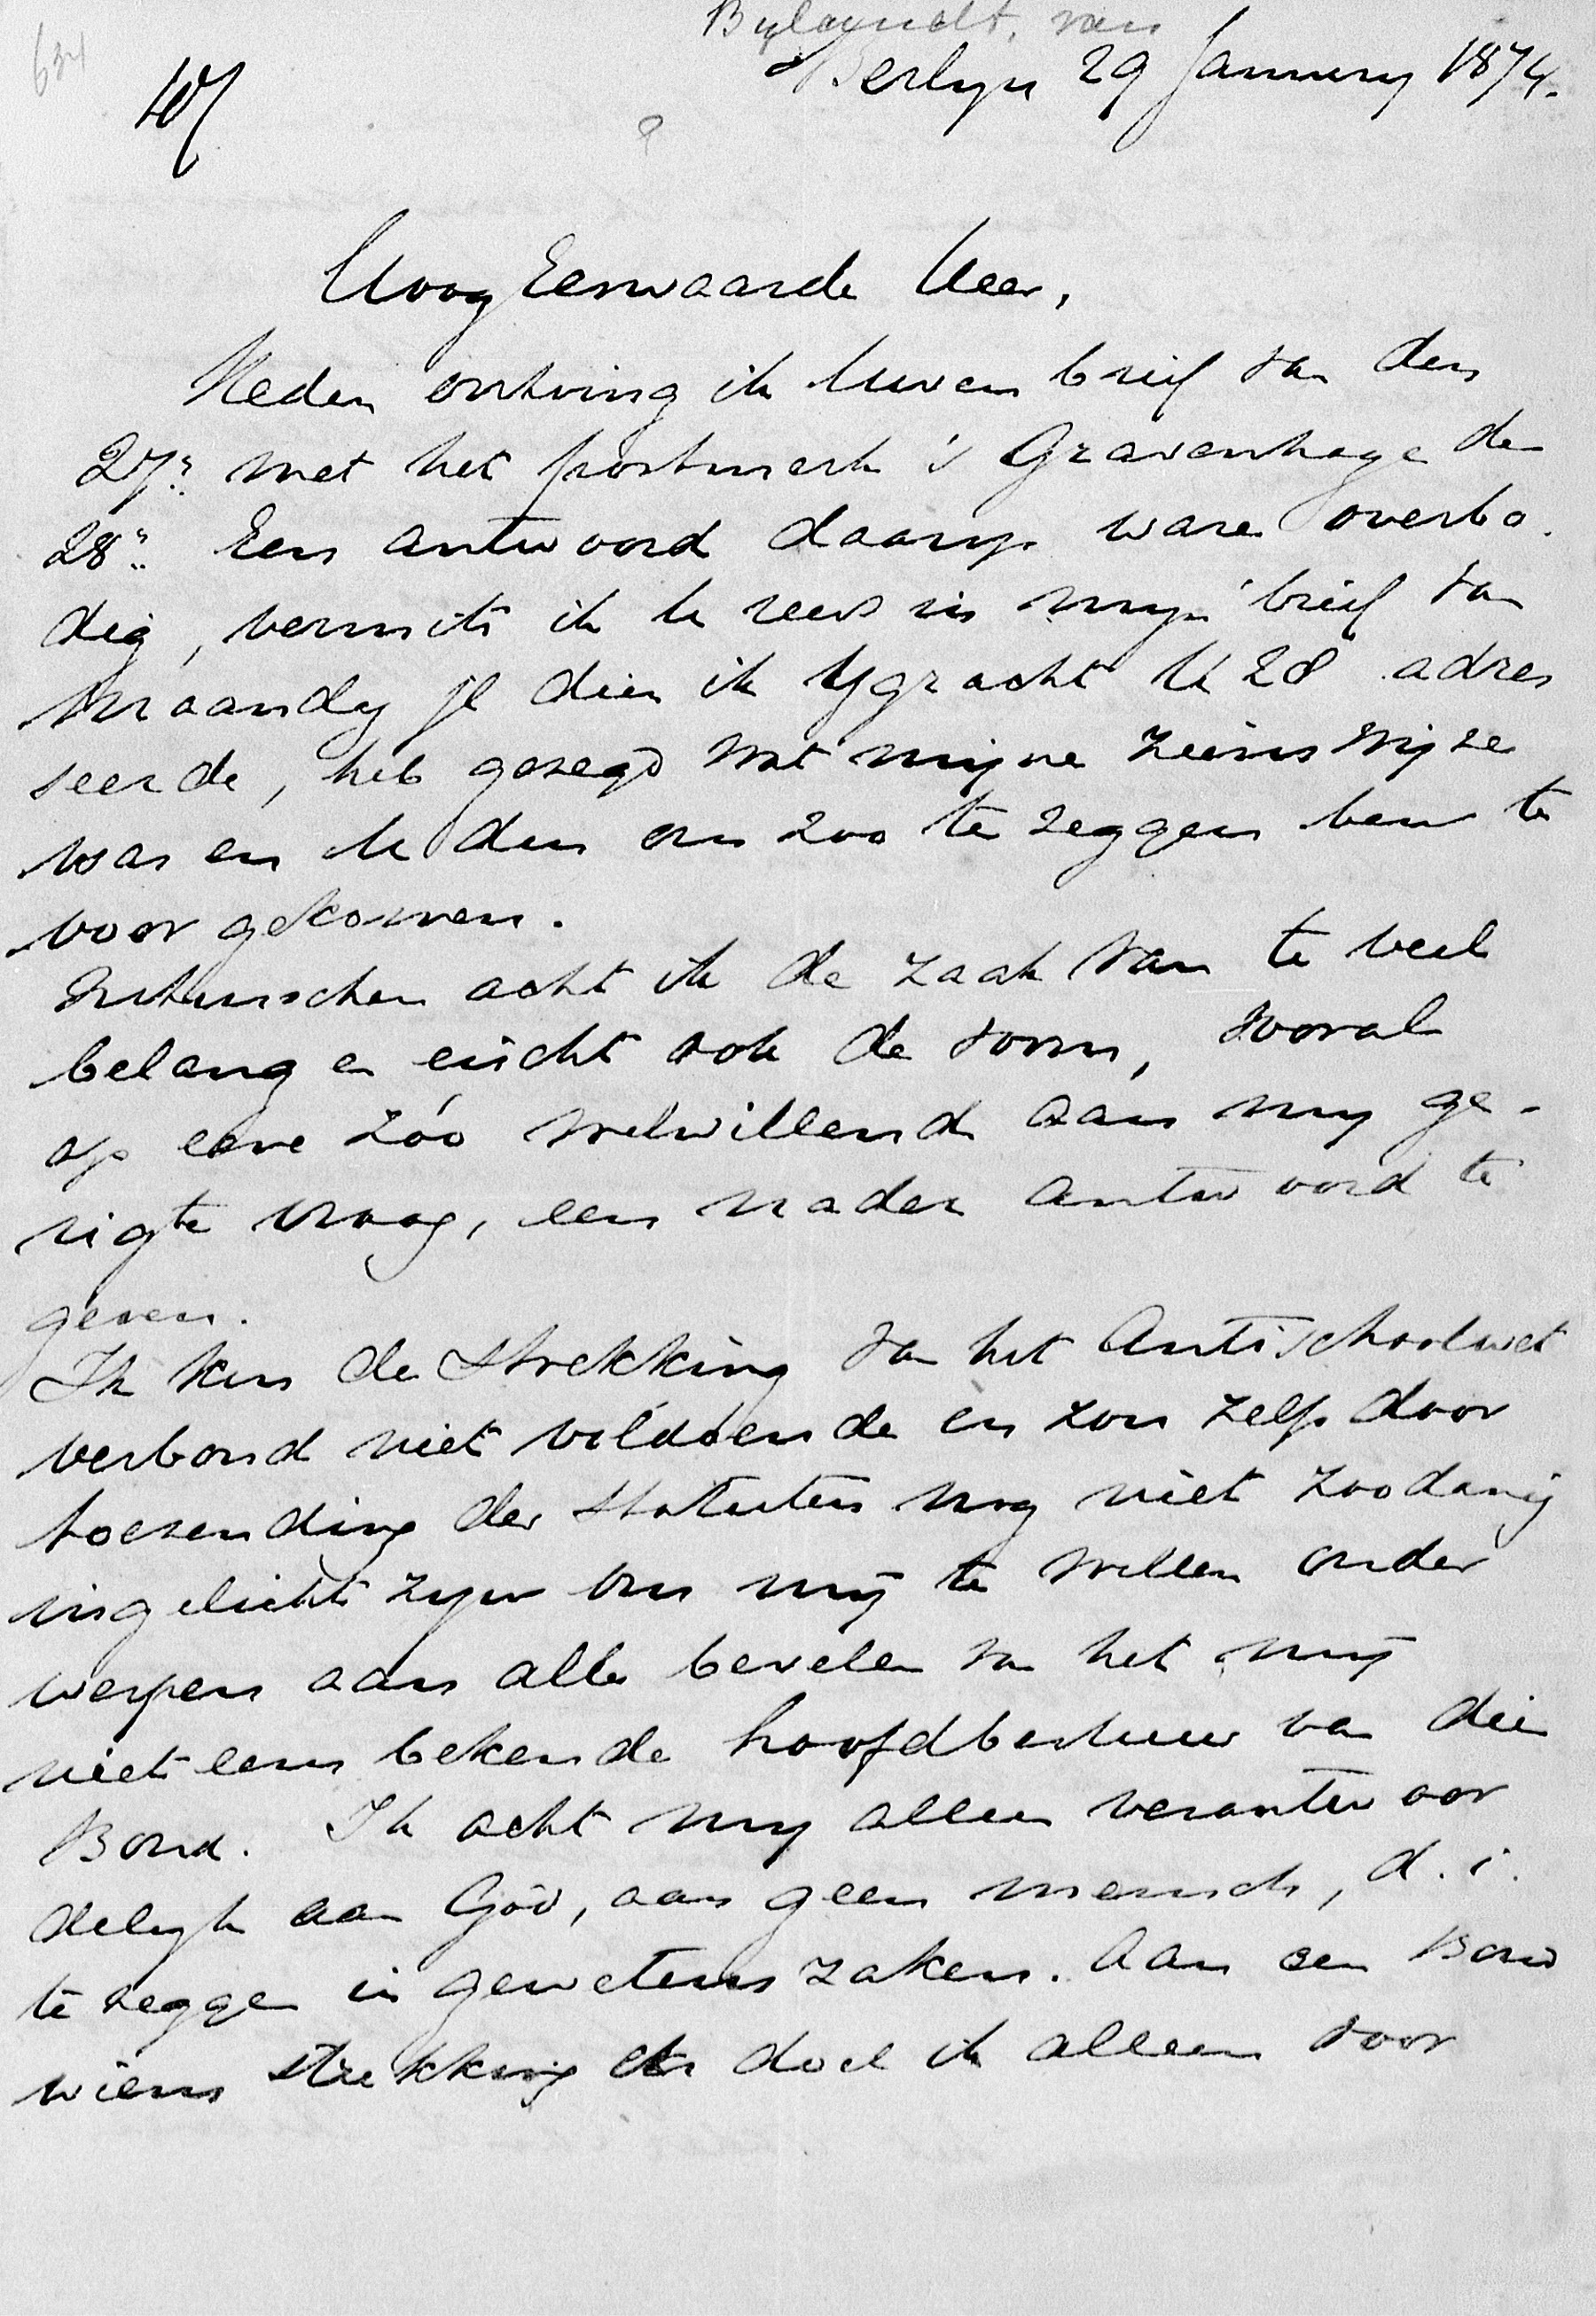 634
Bylandt, van
Berlyn 29 January 1874.
Hoog Eerwaarde Heer,
Heden ontving ik Uwen brief van den
27n met het postmerk 's Gravenhage den
28n. Een antwoord daarop ware overbo.
dig, vermits ik U reeds in mijn brief van
maandag jl dien ik Ygracht U 28 adres
seerde, heb gezegd wat mijne zienswijze
was en U dus om zoo te zeggen ben te
voor gekomen.
Intusschen acht ik de zaak van te veel
belang en eischt ook de vorm, vooral
op eene zóó welwillend aan my ge-
rigte vraag, een nader antwoord te
geven.
Ik ken de strekking van het Antischoolwet
verbond niet voldoende en zou zelfs door
toezending der statuten nog niet zoodanig
ingelicht zyn om mij te willen onder
werpen aan alle bevelen van het mij
niet eens bekende hoofdbestuur van dien
Bond. Ik acht my alleen verantwoor
delyk aan God, aan geen mensch, d. i.
te zeggen in gewetens zaken. Aan een Bond
wiens strekking en doel ik alleen voor